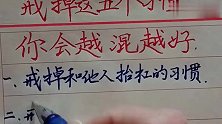 戒掉这五个习惯
你会越混越好.
一、戒掉和他人抬杠的习惯.
二、戒